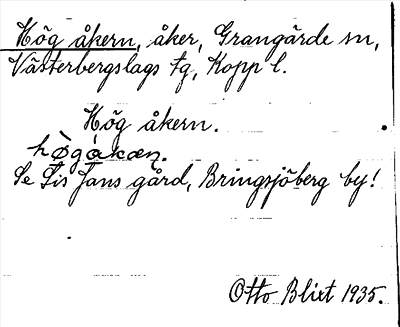 Hög åkern, åker, Grangärde sn,
Västerbergslags tg, Kopp l.
Hög åkern.
hø̀gåkæṇ.
Se Lis Jans gård, Bringsjöberg by!
Otto Blixt 1935.